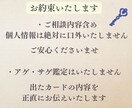 お約束いたします
・ご相談内容含め
個人情報は絶対に口外いたしません
ご安心くださいませ
・アゲ・サゲ鑑定はいたしません
出たカードの内容を
正直にお伝えいたします